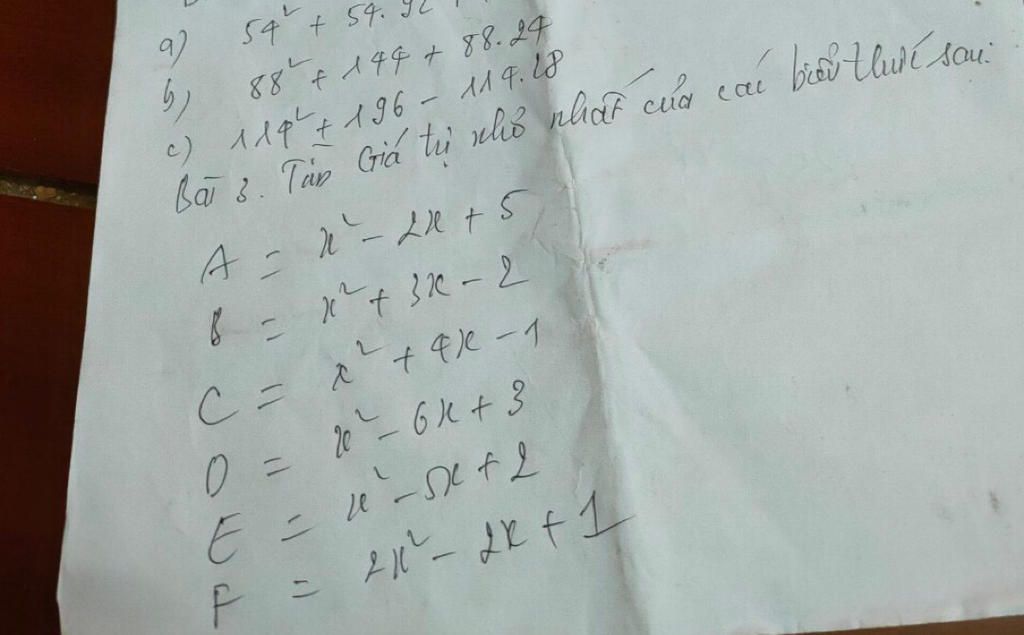 a) 54² + 54.92
b) 88² + 144 + 88.24
c) 114² + 196 - 114.28
Bài 3. Tìm Giá trị nhỏ nhất của các biểu thức sau:
A = x² - 2x + 5
B = x² + 3x - 2
C = x² + 4x - 1
D = x² - 6x + 3
E = x² - 5x + 2
F = 2x² - 2x + 1